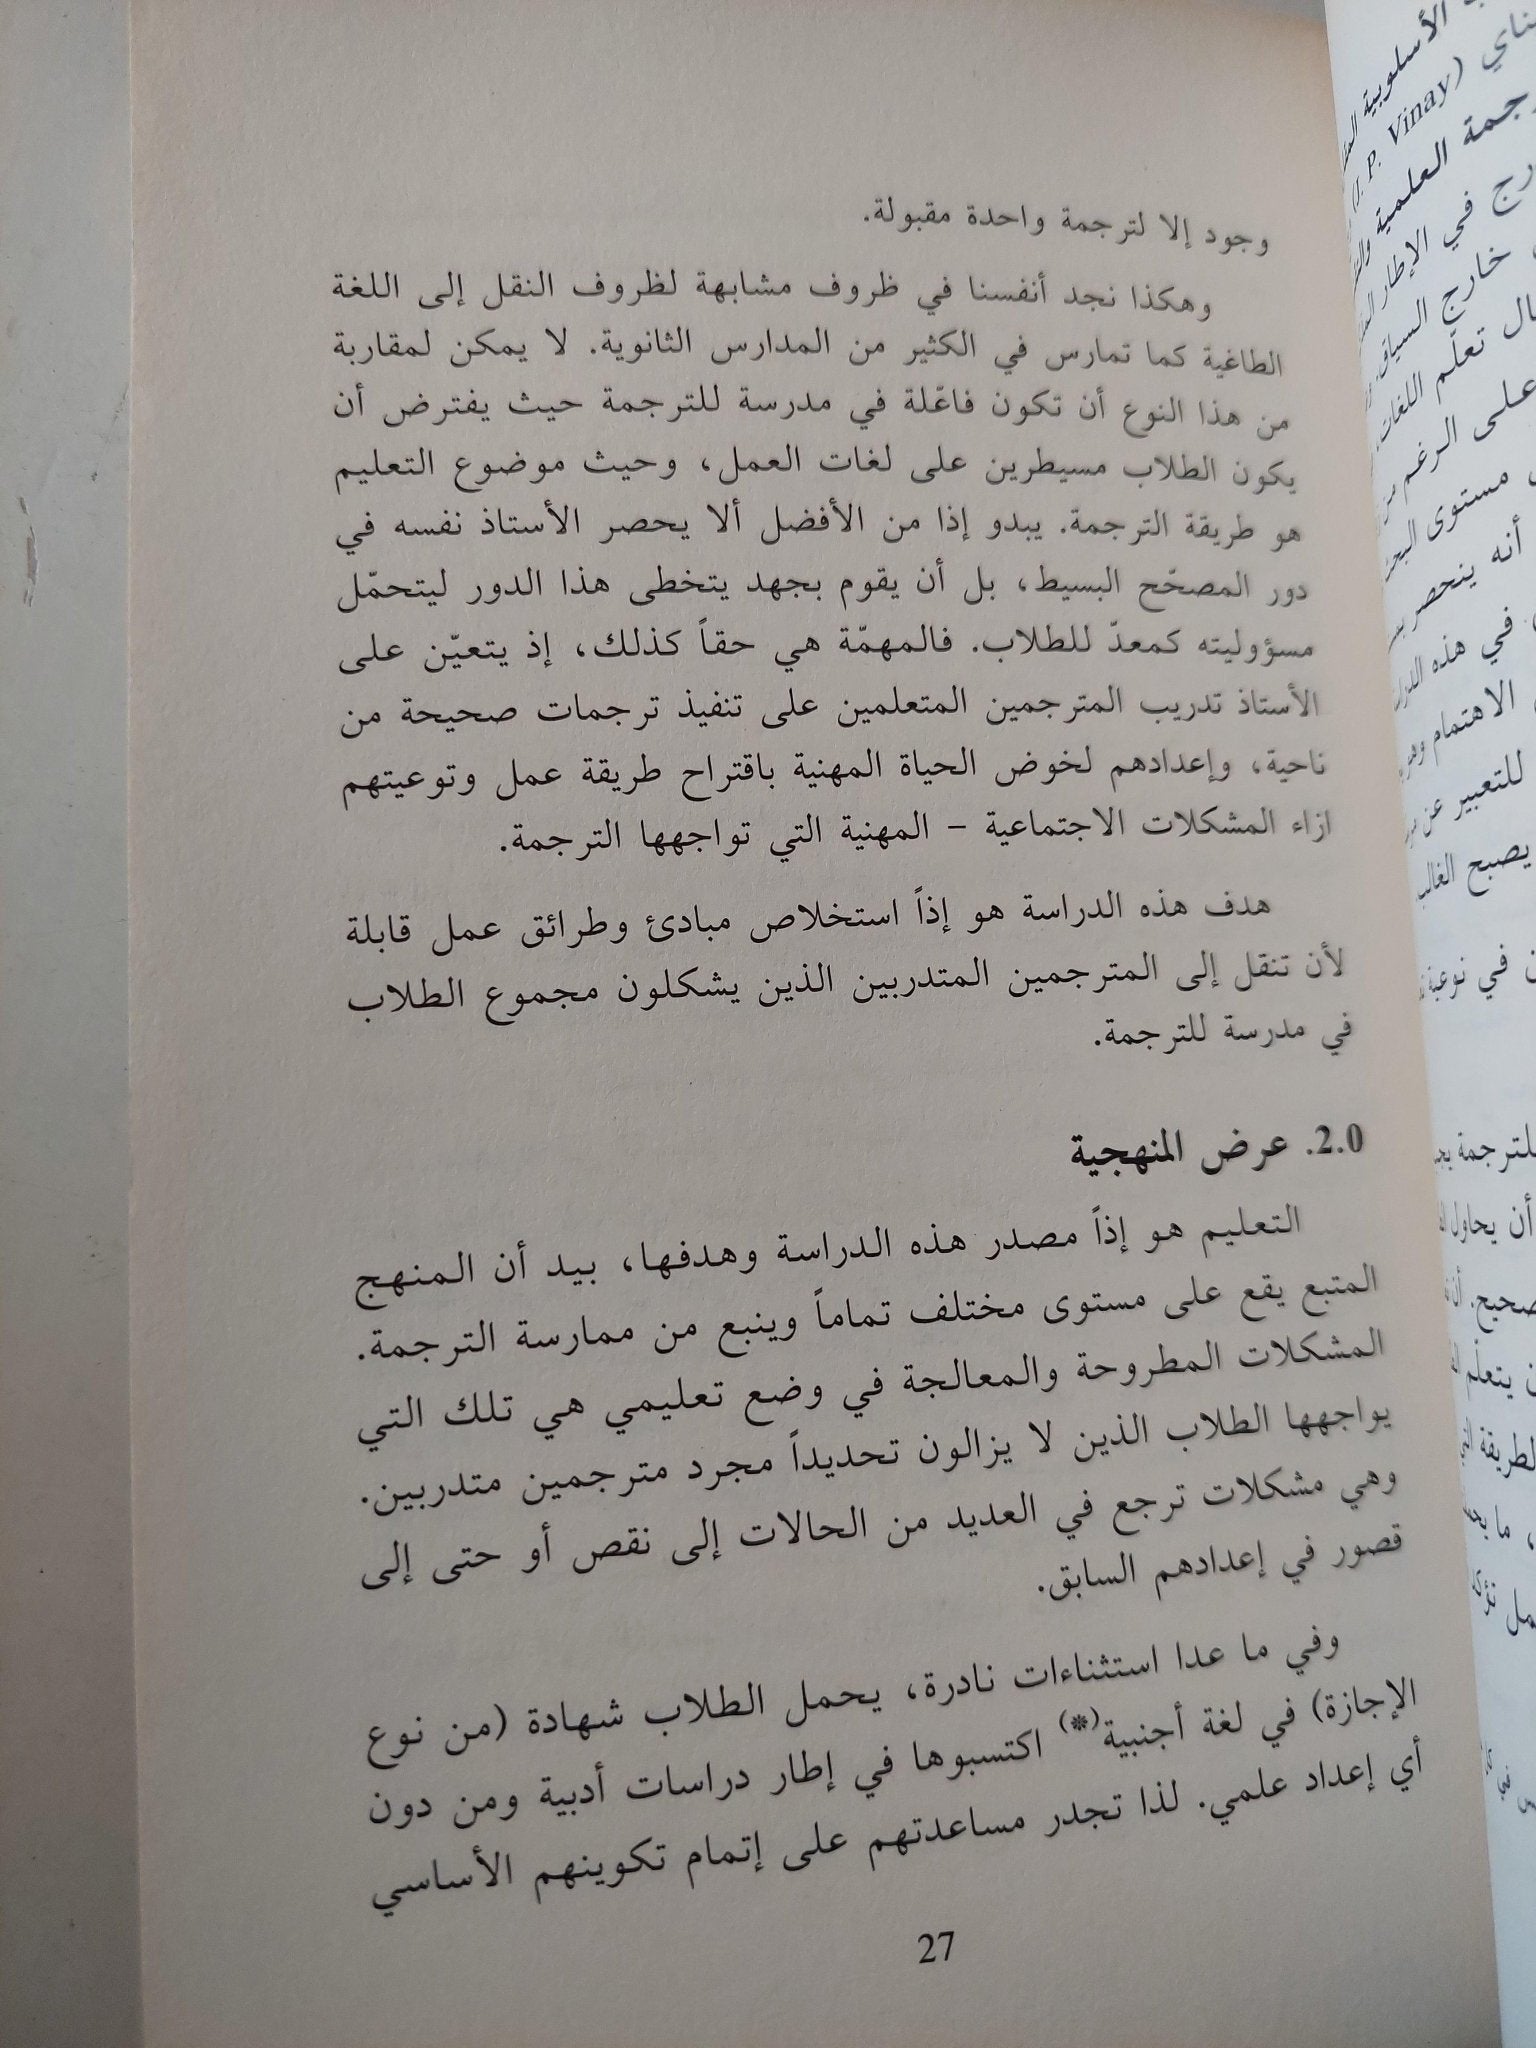 وجود إلا لترجمة واحدة مقبولة.
وهكذا نجد أنفسنا في ظروف مشابهة لظروف النقل إلى اللغة
الطاغية كما تمارس في الكثير من المدارس الثانوية. لا يمكن لمقاربة
من هذا النوع أن تكون فاعّلة في مدرسة للترجمة حيث يفترض أن
يكون الطلاب مسيطرين على لغات العمل، وحيث موضوع التعليم
هو طريقة الترجمة. يبدو إذا من الأفضل ألا يحصر الأستاذ نفسه في
دور المصحّح البسيط، بل أن يقوم بجهد يتخطى هذا الدور ليتحمّل
مسؤوليته كمعدّ للطلاب. فالمهمّة هي حقاً كذلك، إذ يتعيّن على
الأستاذ تدريب المترجمين المتعلمين على تنفيذ ترجمات صحيحة من
ناحية، وإعدادهم لخوض الحياة المهنية باقتراح طريقة عمل وتوعيتهم
ازاء المشكلات الاجتماعية – المهنية التي تواجهها الترجمة.
هدف هذه الدراسة هو إذاً استخلاص مبادئ وطرائق عمل قابلة
لأن تنقل إلى المترجمين المتدربين الذين يشكلون مجموع الطلاب
في مدرسة للترجمة.
2.0. عرض المنهجية
التعليم هو إذاً مصدر هذه الدراسة وهدفها، بيد أن المنهج
المتبع يقع على مستوى مختلف تماماً وينبع من ممارسة الترجمة.
المشكلات المطروحة والمعالجة في وضع تعليمي هي تلك التي
يواجهها الطلاب الذين لا يزالون تحديداً مجرد مترجمين متدربين.
وهي مشكلات ترجع في العديد من الحالات إلى نقص أو حتى إلى
قصور في إعدادهم السابق.
وفي ما عدا استثناءات نادرة، يحمل الطلاب شهادة (من نوع
الإجازة) في لغة أجنبية(*) اكتسبوها في إطار دراسات أدبية ومن دون
أي إعداد علمي. لذا تجدر مساعدتهم على إتمام تكوينهم الأساسي
27
الأسلوبية
(J. P. Vinay)
العلمية
في الإطار
خارج السياق.
تعلّم اللغات.
على الرغم من
مستوى البحث
أنه ينحصر
في هذه
الاهتمام
للتعبير عن
يصبح
في
أن يحاول
يتعلّم